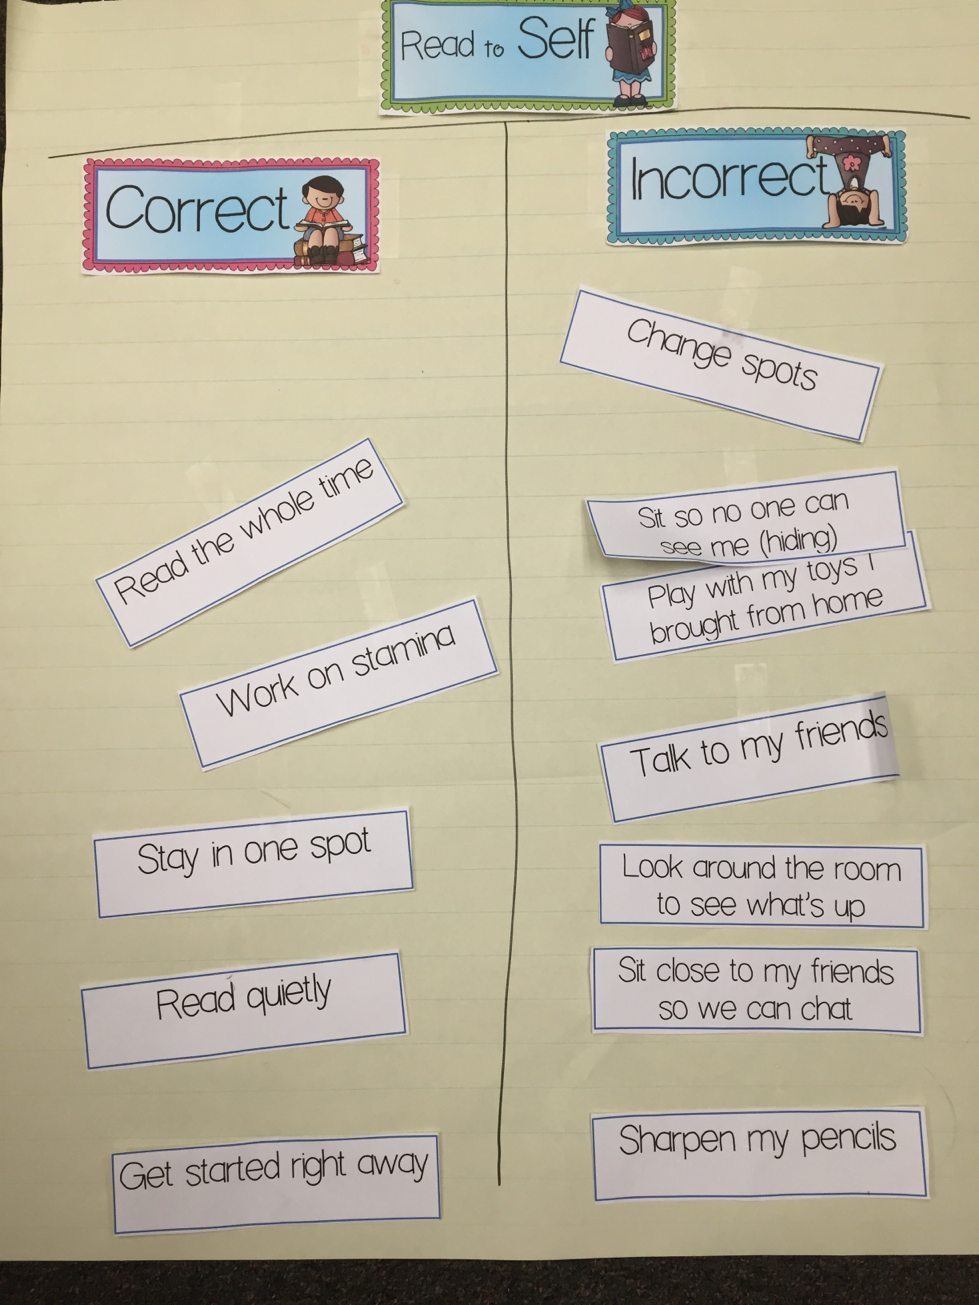 Read to Self
Correct
Incorrect
Read the whole time
Work on stamina
Stay in one spot
Read quietly
Get started right away
Change spots
Sit so no one can
see me (hiding)
Play with my toys I
brought from home
Talk to my friends
Look around the room
to see what's up
Sit close to my friends
so we can chat
Sharpen my pencils